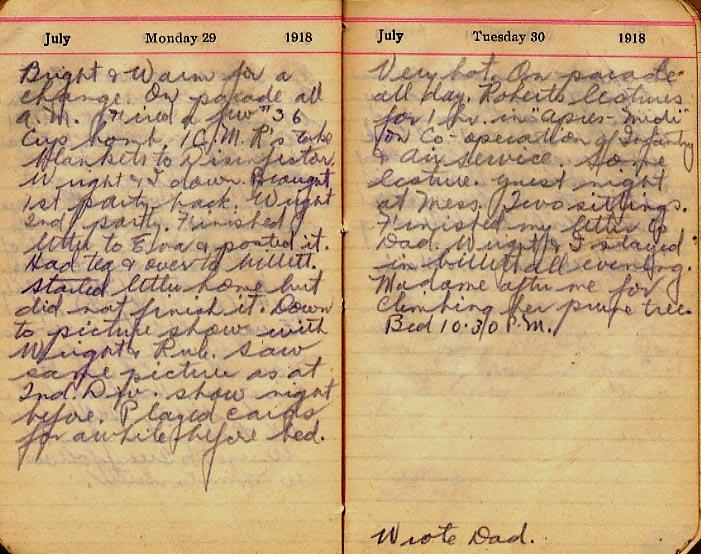 July Monday 29 1918
Bright & Warm for a
change. On parade all
a.m. Fired a few "36
Cup bomb. 1 C.M.R's take
blankets to disinfector.
Wright & I down. Brought
1st party back. Wright
2nd party. Finished
letter to Edna & posted it.
Had tea & over to billett.
Started letter home but
did not finish it. Down
to picture show with
Wright & Rub. Saw
same picture as at
2nd. Div. show night
before. Played cards
for awhile before bed.
July Tuesday 30 1918
Very hot. On parade
all day. Roberts lectures
for 1 hr. in "Apres-Midi"
for Co-operation of Infantry
& Air service. Some
lecture. Guest night
at Mess. Two sittings.
Finished my letter to
Dad. Wright & I stayed
in billett all evening.
Madame after me for
climbing her prune tree.
Bed 10:30 P.M.
Wrote Dad.